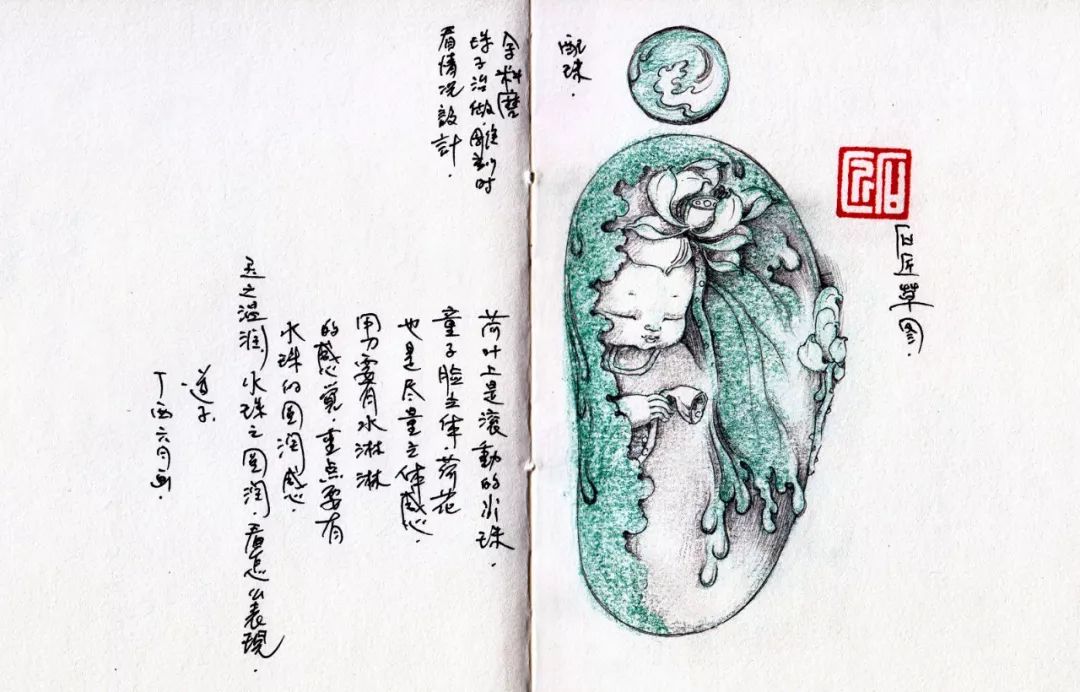 石匠草图.
配珠.
余料磨
珠子 做雕刻时
看情况設計.
荷叶上是滚動的水珠.
童子脸立体.荷花
也是尽量立体感.
用刀要有水淋淋
的感覚.重点要有
水珠的圆润感.
玉之温润,水珠之圆润.看怎么表現.
道子.
丁酉六月画.